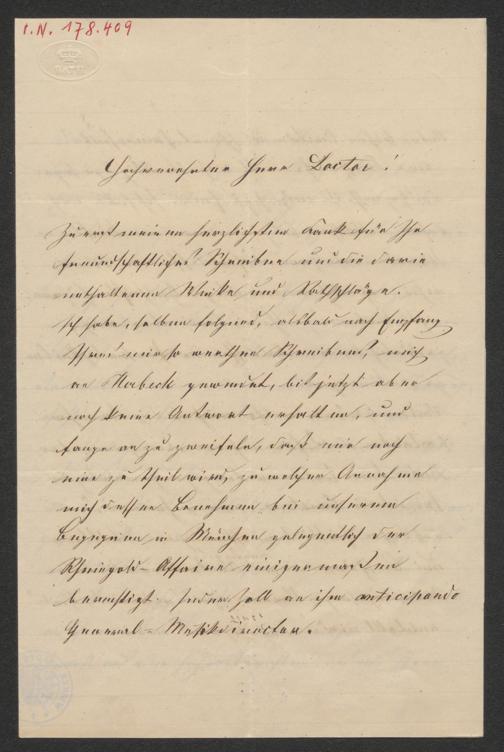 I.N. 178.409
Hochverehrter Herr Doctor!
Zuerst meinen herzlichsten Dank für Ihr
freundschaftliches Schreiben und die darin
enthaltenen Winke und Rathschläge.
Ich habe, selben folgend, alsbald nach Empfang
Ihres mir so werthen Schreibens, mich
an Naback gewendet, bis jetzt aber
noch keine Antwort erhalten, und
fange an zu zweifeln, daß mir noch
eine zu theil wird, zu welcher Annahme
mich dessen Benehmen bei unserem
Begegnen in München gelegentlich der
Rheingold-Affaire einigermaßen
berechtigt. Jeder Zoll an ihm anticipando
General-Musikdirector.